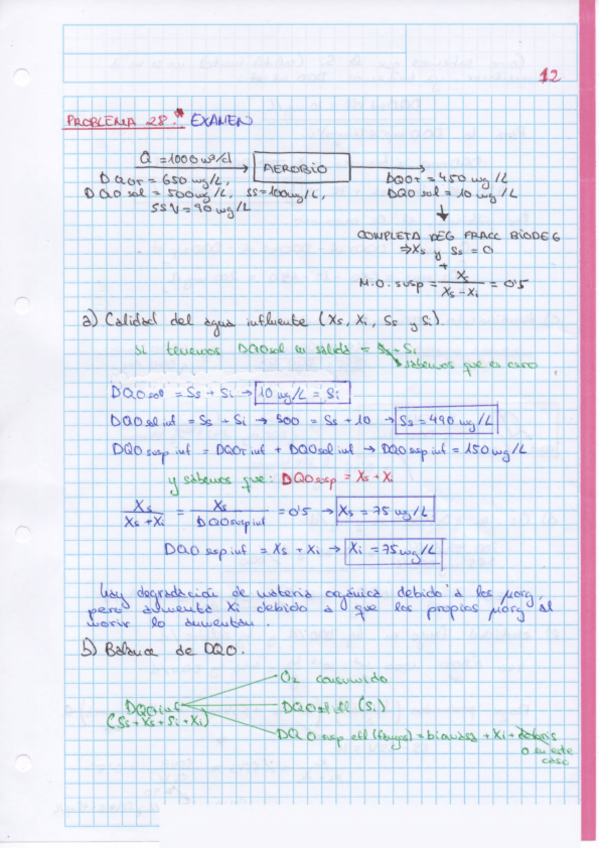 12
PROBLEMA 28.* EXAMEN
Q = 1000 m³/d
AEROBIO
DQOT = 650 mg/L,
DQO sol = 500 mg/L, SS = 100 mg/L,
SSV = 90 mg/L
DQOT = 450 mg/L
DQO sol = 10 mg/L
COMPLETA DEG FRACC BIODEG
⇒ Xs y Ss = 0
+
M.O. susp = Xs / (Xs - Xi) = 0'5
a) Calidad del agua influente (Xs, Xi, Ss y Si).
Si tenemos DQOsol en salida = Ss + Si
sabemos que es cero
DQO sol = Ss + Si → 10 mg/L = Si
DQO sol inf = Ss + Si → 500 = Ss + 10 → Ss = 490 mg/L
DQO susp inf = DQOT inf + DQO sol inf → DQO susp inf = 150 mg/L
y sabemos que: DQO susp = Xs + Xi
Xs / (Xs + Xi) = Xs / DQO susp inf = 0'5 → Xs = 75 mg/L
DQO susp inf = Xs + Xi → Xi = 75 mg/L
hay degradación de materia orgánica debido a los μorg,
pero aumenta Xi debido a que los propios μorg al
morir lo aumentan.
b) Balance de DQO.
O2 consumido
DQO inf
(Ss + Xs + Si + Xi)
DQO sol efl (Si)
DQO susp efl (fangos) = biomasa + Xi + debris
0 en este
caso